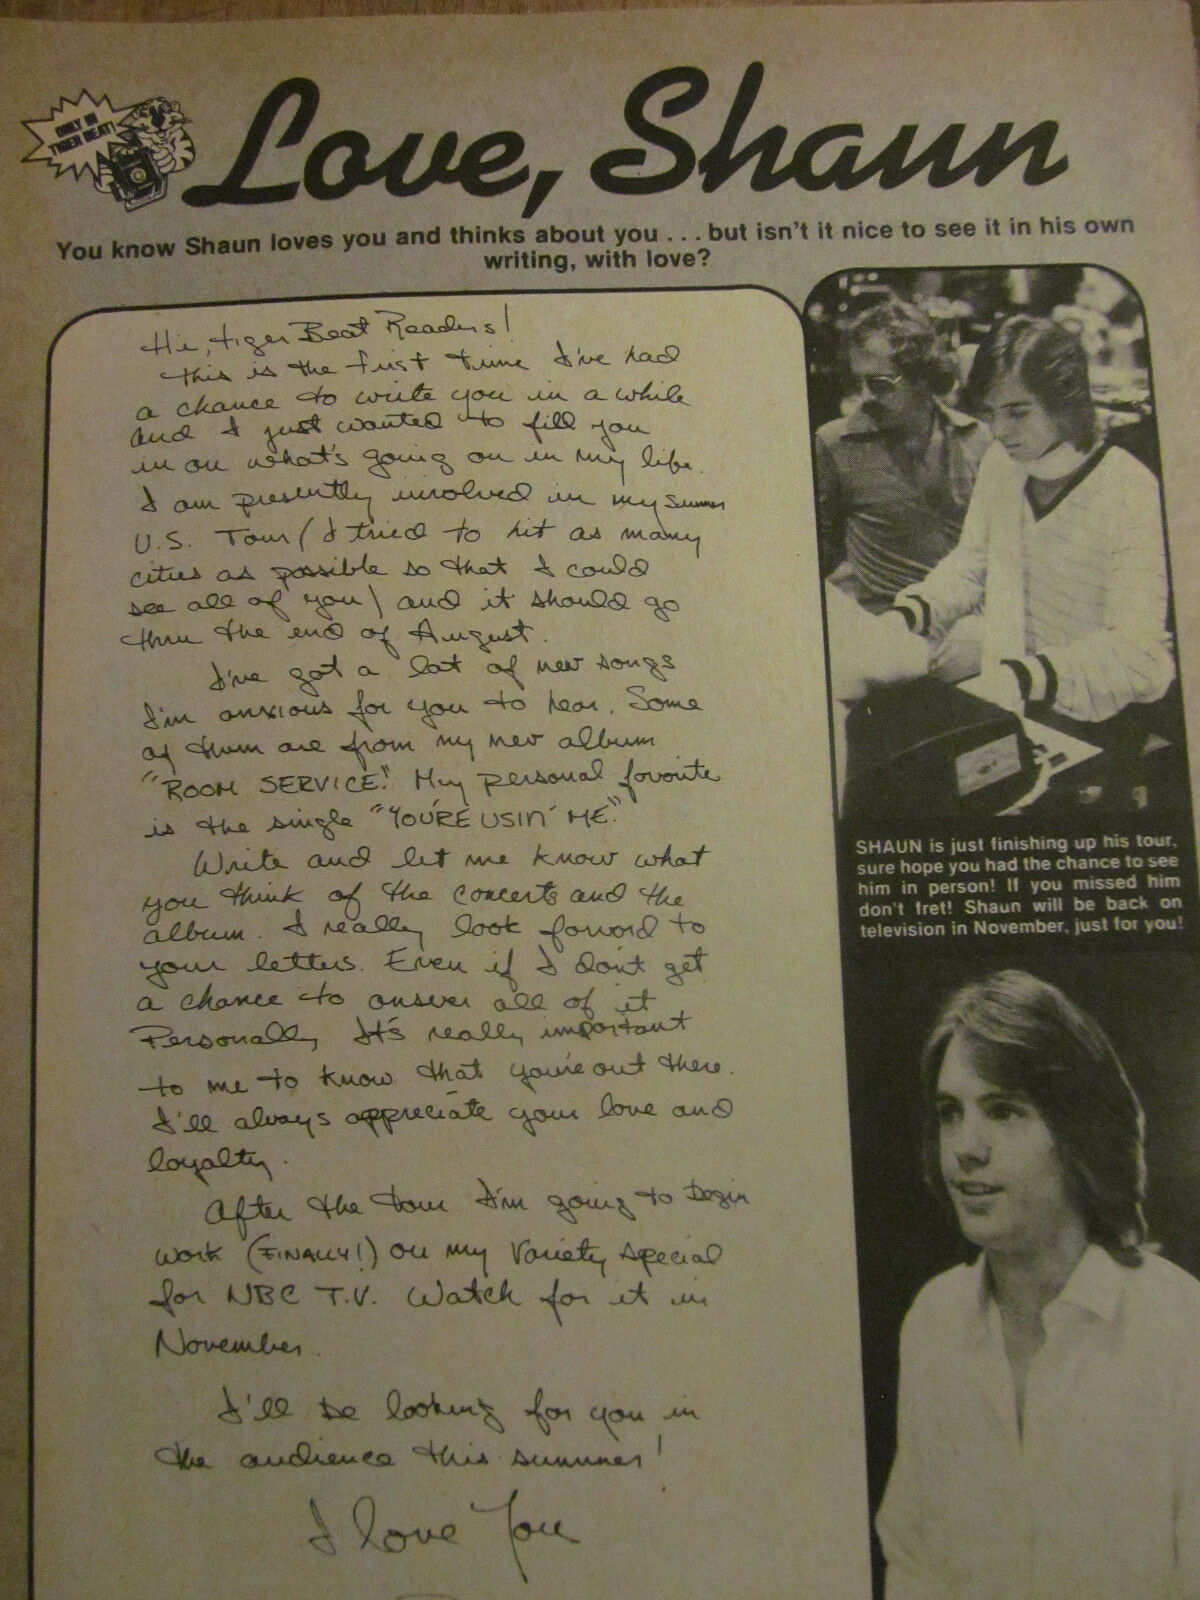 ONLY IN
TIGER BEAT!
Love, Shaun
You know Shaun loves you and thinks about you . . . but isn't it nice to see it in his own
writing, with love?
Hi, tiger Beat Readers!
this is the first time I've had
a chance to write you in a while
and I just wanted to fill you
in on what's going on in my life.
I am presently involved in my summer
U.S. Tour (I tried to hit as many
cities as possible so that I could
see all of you) and it should go
thru the end of August.
I've got a lot of new songs
I'm anxious for you to hear. Some
of them are from my new album
"ROOM SERVICE." My personal favorite
is the single "YOU'RE USIN' ME."
Write and let me know what
you think of the concerts and the
album. I really look forward to
your letters. Even if I don't get
a chance to answer all of it
Personally, It's really important
to me to know that you're out there.
I'll always appreciate your love and
loyalty.
After the tour I'm going to begin
work (FINALLY!) on my Variety special
for NBC T.V. Watch for it in
November.
I'll be looking for you in
the audience this summer!
I love You
SHAUN is just finishing up his tour,
sure hope you had the chance to see
him in person! If you missed him
don't fret! Shaun will be back on
television in November, just for you!